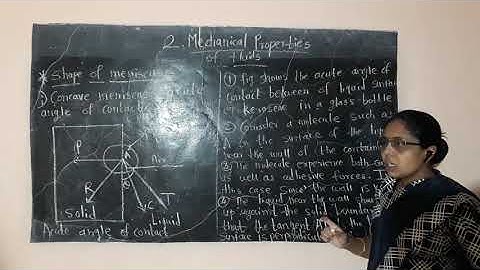 2. Mechanical Properties
of fluids
* Shape of meniscus
① Concave meniscus
angle of contact
P
A
Air
θ
R
C
T
Solid
Liquid
Acute angle of contact
① Fig shows the acute angle of
contact between of liquid surface
or kerosene in a glass bottle
② Consider a molecule such as
A on the surface of the liq
near the wall of the
③ The molecule experience both
as well as adhesive forces.
this case since the wall is
④ The liquid near the wall
up against the solid
that the tangent
surface is perpendicular